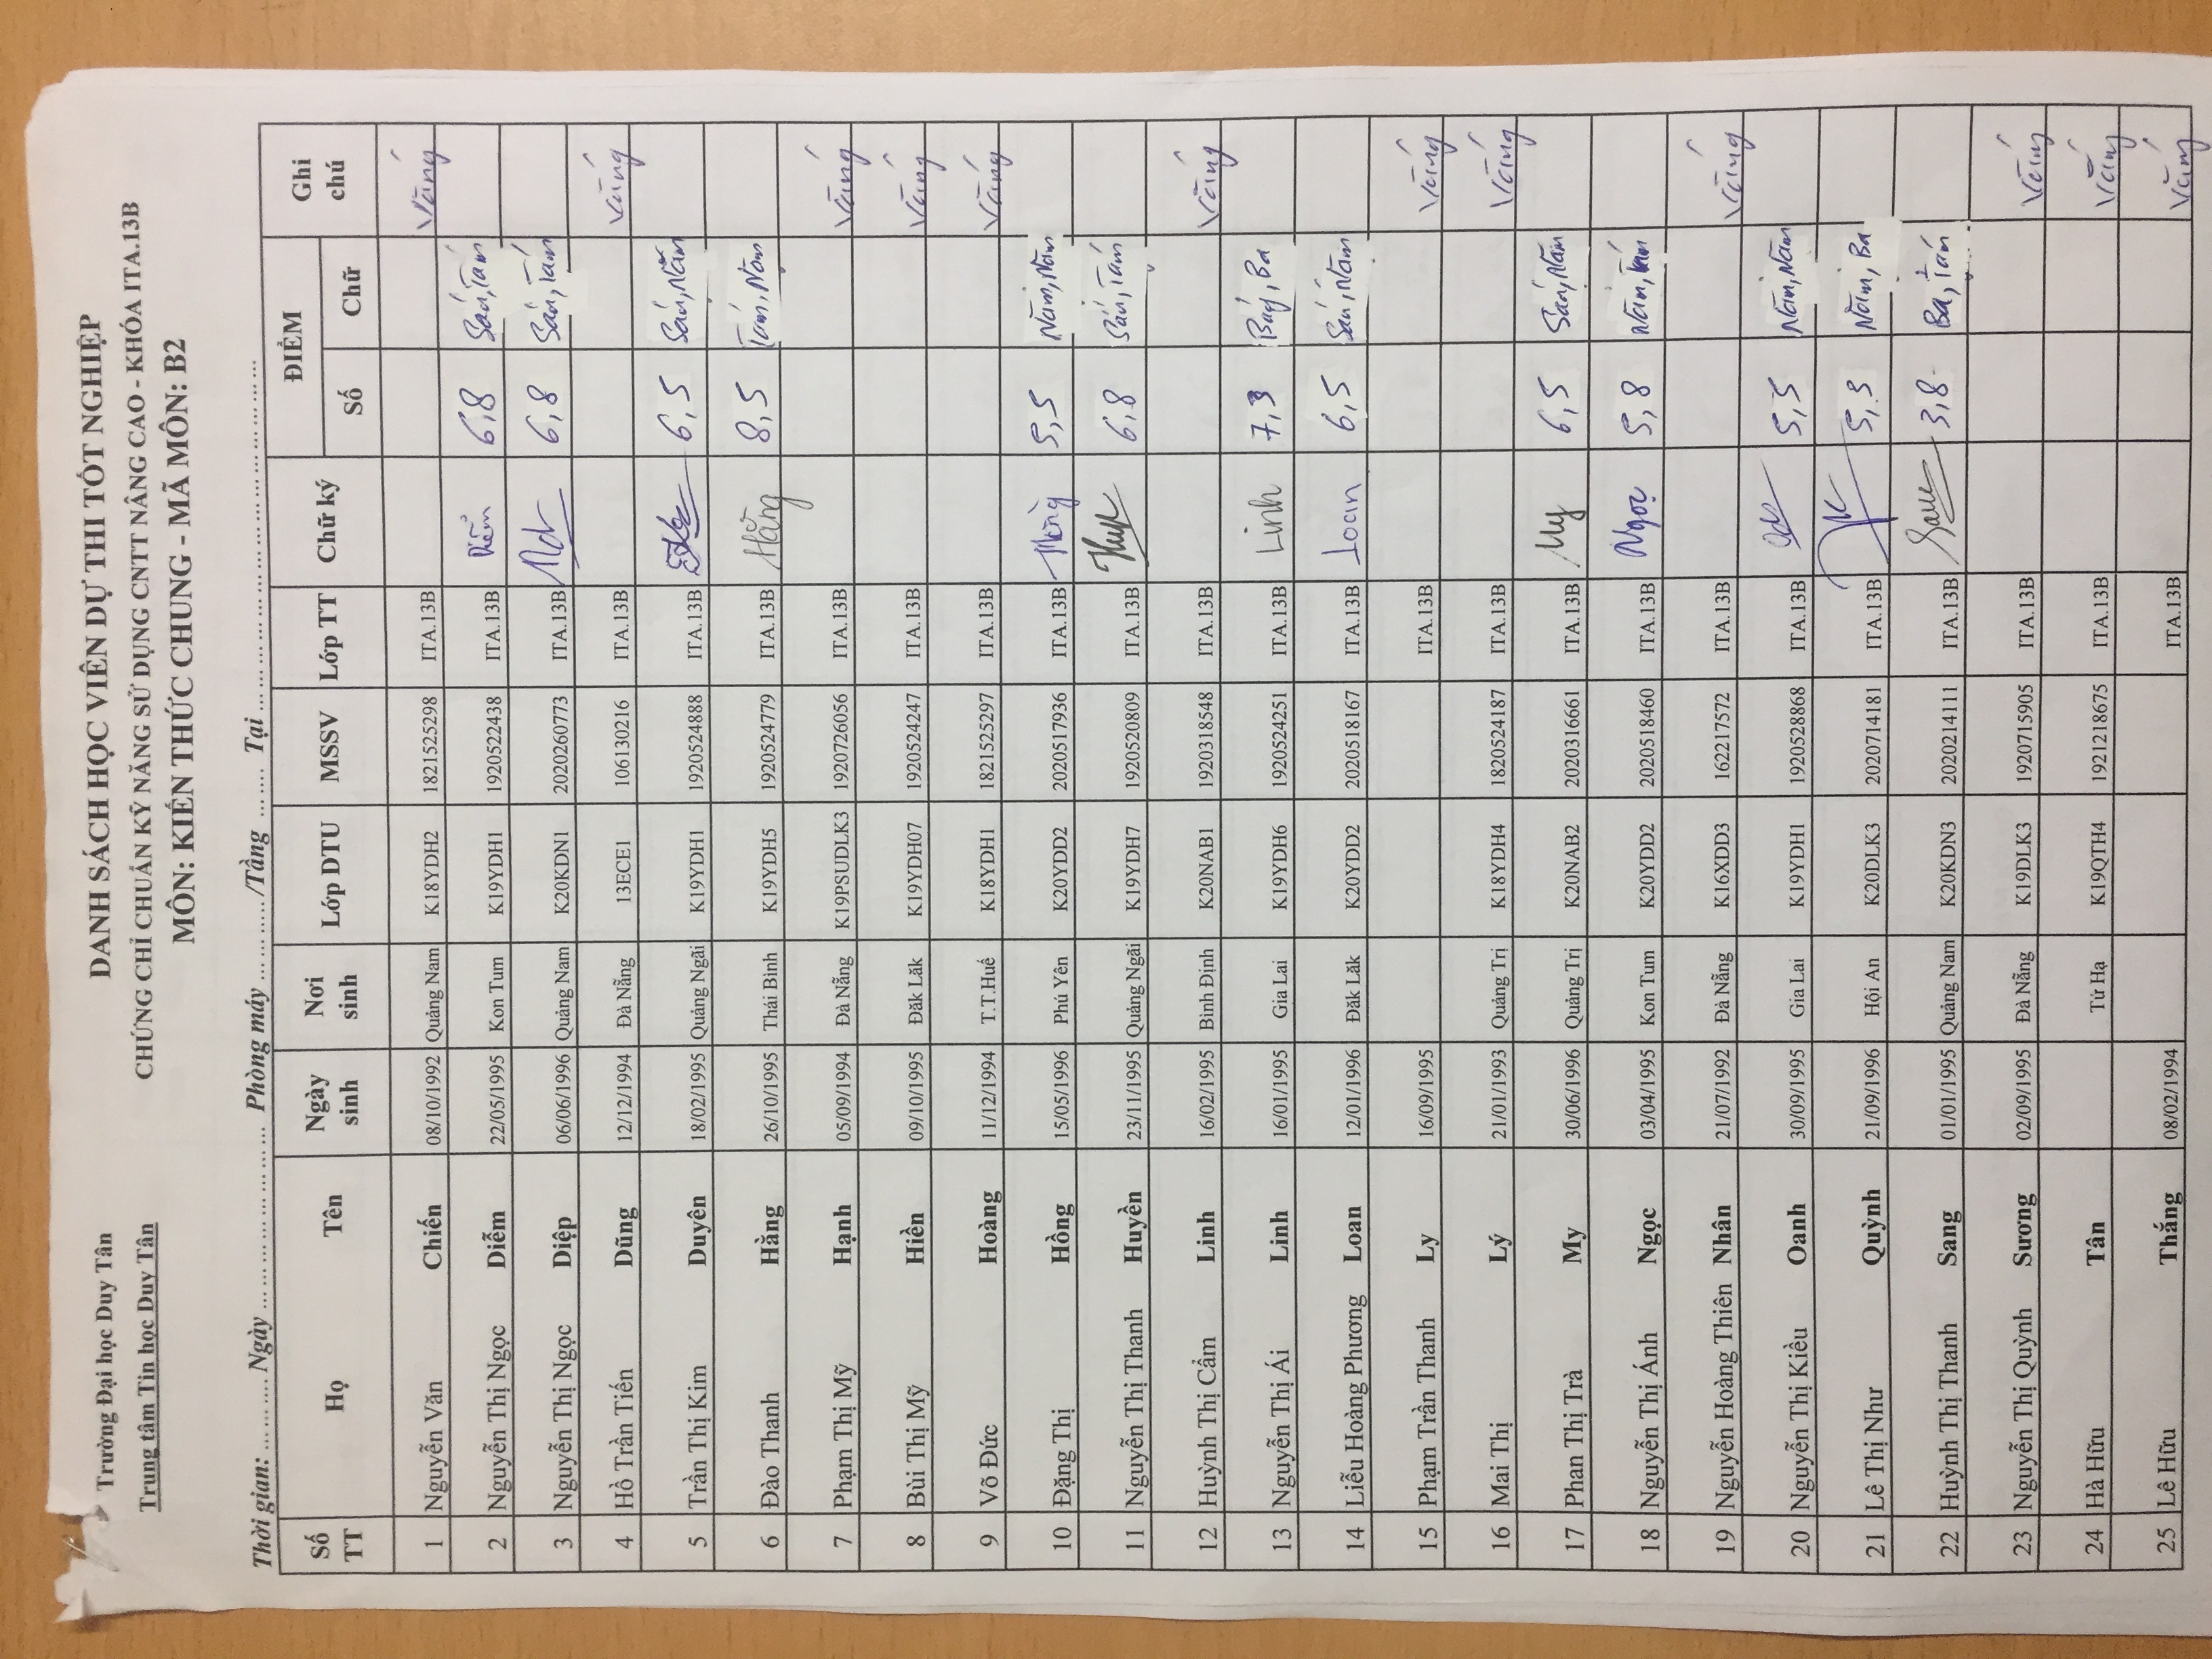 Trường Đại học Duy Tân
Trung tâm Tin học Duy Tân
DANH SÁCH HỌC VIÊN DỰ THI TỐT NGHIỆP
CHỨNG CHỈ CHUẨN KỸ NĂNG SỬ DỤNG CNTT NÂNG CAO - KHÓA ITA.13B
MÔN: KIẾN THỨC CHUNG - MÃ MÔN: B2
Thời gian: ... ... ... Ngày ... ... ... ... ... ... Phòng máy ... ... ... /Tầng ... ... Tại ... ... ... ... ... ... ... ... ... ... ... ...
Số TT Họ Tên Ngày sinh Nơi sinh Lớp DTU MSSV Lớp TT Chữ ký ĐIỂM Số Chữ Ghi chú
1 Nguyễn Văn Chiến 08/10/1992 Quảng Nam K18YDH2 1821525298 ITA.13B Vắng
2 Nguyễn Thị Ngọc Diễm 22/05/1995 Kon Tum K19YDH1 1920522438 ITA.13B Diễm 6,8 Sáu, Tám
3 Nguyễn Thị Ngọc Diệp 06/06/1996 Quảng Nam K20KDN1 2020260773 ITA.13B 6,8 Sáu, Tám
4 Hồ Trần Tiến Dũng 12/12/1994 Đà Nẵng 13ECE1 106130216 ITA.13B Vắng
5 Trần Thị Kim Duyên 18/02/1995 Quảng Ngãi K19YDH1 1920524888 ITA.13B 6,5 Sáu, Năm
6 Đào Thanh Hằng 26/10/1995 Thái Bình K19YDH5 1920524779 ITA.13B Hằng 8,5 Tám, Năm
7 Phạm Thị Mỹ Hạnh 05/09/1994 Đà Nẵng K19PSUDLK3 1920726056 ITA.13B Vắng
8 Bùi Thị Mỹ Hiền 09/10/1995 Đăk Lăk K19YDH07 1920524247 ITA.13B Vắng
9 Võ Đức Hoàng 11/12/1994 T.T.Huế K18YDH1 1821525297 ITA.13B Vắng
10 Đặng Thị Hồng 15/05/1996 Phú Yên K20YDD2 2020517936 ITA.13B Hồng 5,5 Năm, Năm
11 Nguyễn Thị Thanh Huyền 23/11/1995 Quảng Ngãi K19YDH7 1920520809 ITA.13B 6,8 Sáu, Tám
12 Huỳnh Thị Cẩm Linh 16/02/1995 Bình Định K20NAB1 1920318548 ITA.13B Vắng
13 Nguyễn Thị Ái Linh 16/01/1995 Gia Lai K19YDH6 1920524251 ITA.13B Linh 7,3 Bảy, Ba
14 Liễu Hoàng Phương Loan 12/01/1996 Đăk Lăk K20YDD2 2020518167 ITA.13B Loan 6,5 Sáu, Năm
15 Phạm Trần Thanh Ly 16/09/1995 ITA.13B Vắng
16 Mai Thị Lý 21/01/1993 Quảng Trị K18YDH4 1820524187 ITA.13B Vắng
17 Phan Thị Trà My 30/06/1996 Quảng Trị K20NAB2 2020316661 ITA.13B My 6,5 Sáu, Năm
18 Nguyễn Thị Ánh Ngọc 03/04/1995 Kon Tum K20YDD2 2020518460 ITA.13B Ngọc 5,8 Năm, Tám
19 Nguyễn Hoàng Thiên Nhân 21/07/1992 Đà Nẵng K16XDD3 162217572 ITA.13B Vắng
20 Nguyễn Thị Kiều Oanh 30/09/1995 Gia Lai K19YDH1 1920528868 ITA.13B 5,5 Năm, Năm
21 Lê Thị Như Quỳnh 21/09/1996 Hội An K20DLK3 2020714181 ITA.13B 5,3 Năm, Ba
22 Huỳnh Thị Thanh Sang 01/01/1995 Quảng Nam K20KDN3 2020214111 ITA.13B 3,8 Ba, Tám
23 Nguyễn Thị Quỳnh Sương 02/09/1995 Đà Nẵng K19DLK3 1920715905 ITA.13B Vắng
24 Hà Hữu Tân Tứ Hạ K19QTH4 1921218675 ITA.13B Vắng
25 Lê Hữu Thắng 08/02/1994 ITA.13B Vắng